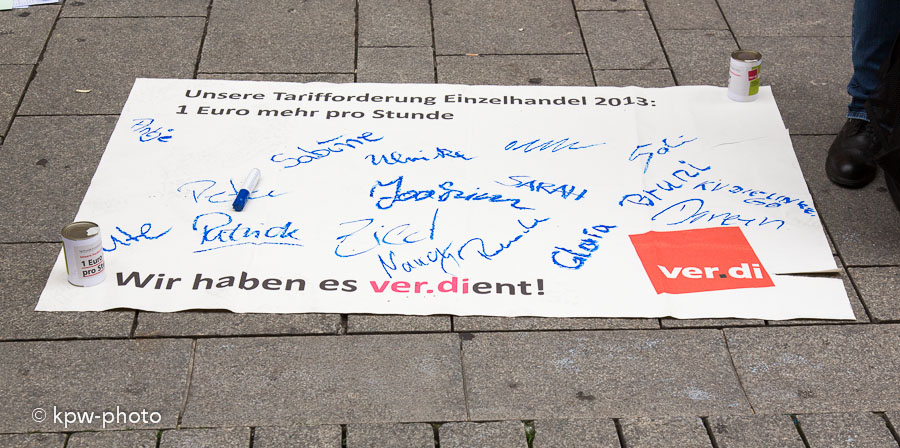 Unsere Tarifforderung Einzelhandel 2013:
1 Euro mehr pro Stunde
Antje
Sabine
Ulrike
Gabi
Peter
Joachim
SARAH
Bruni
Ute
Patrick
Nancy
Gloria
1 Euro
pro St
Wir haben es ver.dient!
ver.di
© kpw-photo